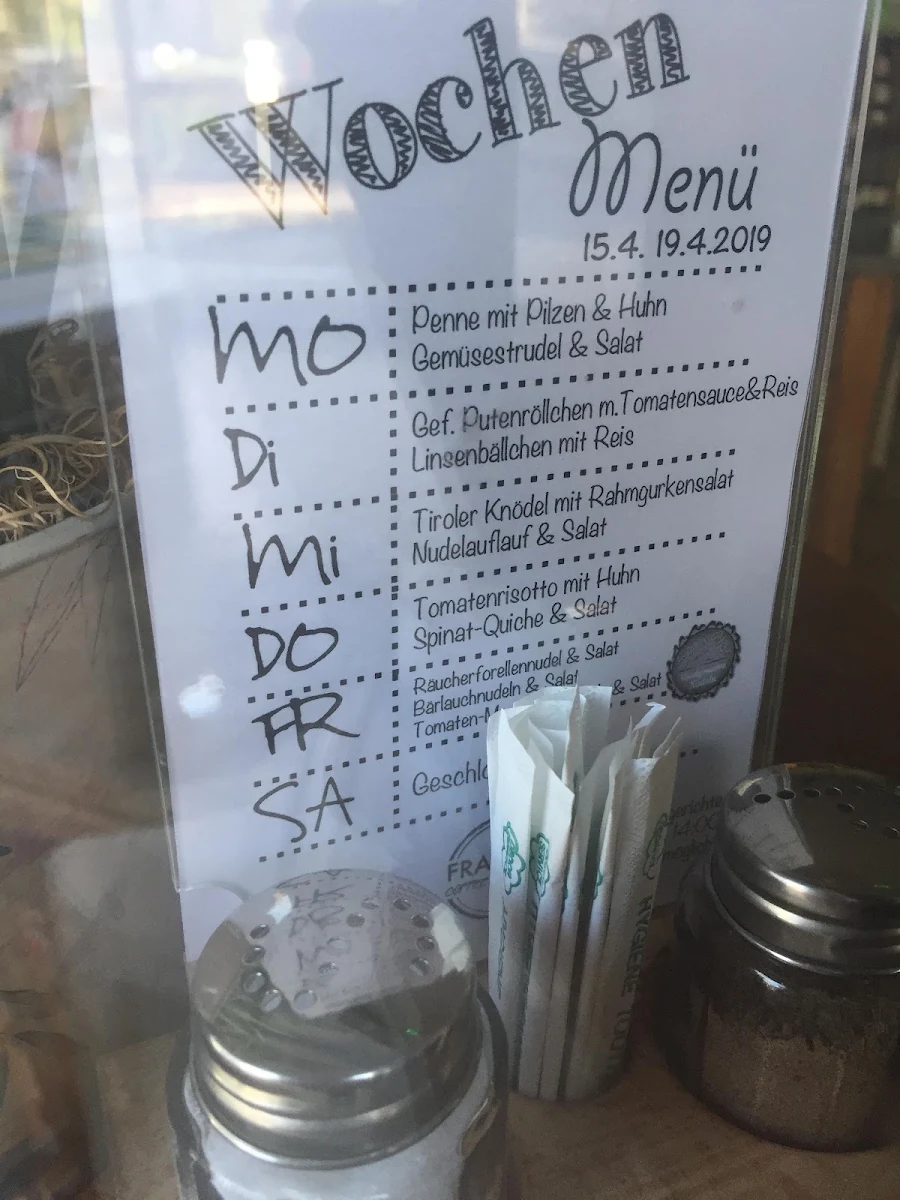 Wochen
Menü
15.4. 19.4.2019
MO
Penne mit Pilzen & Huhn
Gemüsestrudel & Salat
Di
Gef. Putenröllchen m.Tomatensauce&Reis
Linsenbällchen mit Reis
Mi
Tiroler Knödel mit Rahmgurkensalat
Nudelauflauf & Salat
DO
Tomatenrisotto mit Huhn
Spinat-Quiche & Salat
FR
Räucherforellennudel & Salat
Bärlauchnudeln & Salat
Tomaten-M & Salat
SA
Geschlo
FRA
14:00
HYGIENE